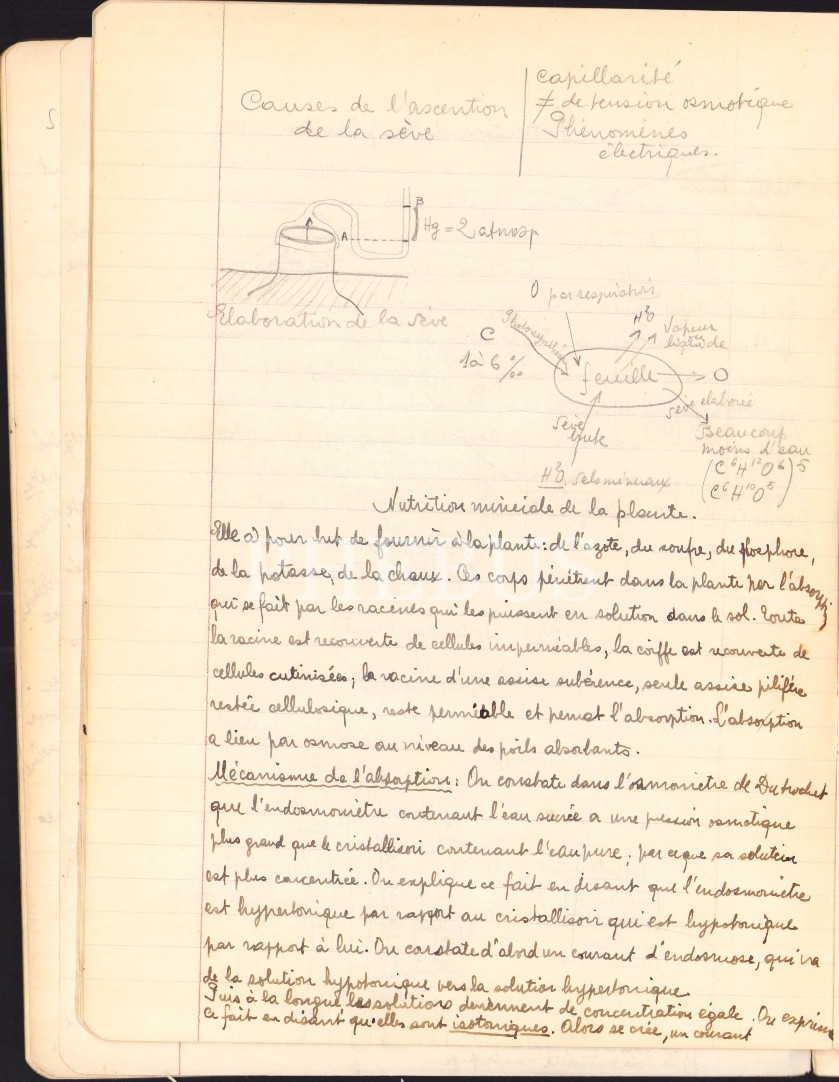 Causes de l'ascention
de la sève
capillarité
≠ de tension osmotique
Phénomènes
électriques.
B
A
Hg = 2 atmosp
Elaboration de la sève
O par respiration
Photosynthèse
C
1 à 6 ‰
H²O
Vapeur
liquide
feuille
O
sève elaborée
Sève
brute
H²O. sels minéraux
Beaucoup
moins d'eau
(C⁶H¹²O⁶)5
(C⁶H¹⁰O⁵)
Nutrition minérale de la plante.
Elle a pour but de fournir à la plante: de l'azote, du soufre, du phosphore,
de la potasse, de la chaux. Ces corps pénètrent dans la plante par l'absorption
qui se fait par les racines qui les puissent en solution dans le sol. Toute
la racine est recouverte de cellules imperméables, la coiffe est recouverte de
cellules cutinisées; la racine d'une assise subérence, seule assise pilifère
restée cellulosique, reste perméable et permet l'absorption. L'absorption
a lieu par osmose au niveau des poils absorbants.
Mécanisme de l'absorption: On constate dans l'osmomètre de Dutrochet
que l'endosmomètre contenant l'eau sucrée a une pression osmotique
plus grand que le cristallisoir contenant l'eau pure; parceque sa solution
est plus concentrée. On explique ce fait en disant que l'endosmomètre
est hypertonique par rapport au cristallisoir qui est hypotonique
par rapport à lui. On constate d'abord un courant d'endosmose, qui va
de la solution hypotonique vers la solution hypertonique
Puis à la longue les solutions deviennent de concentration égale. On exprime
ce fait en disant qu'elles sont isotoniques. Alors se crée, un courant